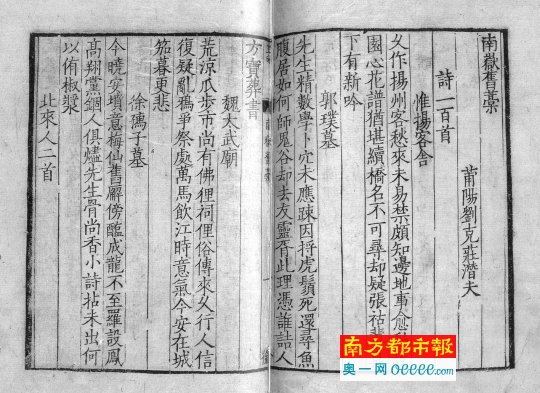 南嶽舊稾
詩一百首
莆陽劉克莊潛夫
惟揚客舍
久作揚州客愁來未易禁頗知邊地事愈
園心花譜猶堪續橋名不可尋却疑張祜
下有新吟
郭璞墓
先生精數學卜穴未應疎因捋虎鬚死還尋魚
腹居如何師鬼谷却去友靈胥此理憑誰詰人
方寶葬書
魏太武廟
荒涼瓜步市尚有佛狸祠俚俗傳來久行人信
復疑亂鴉爭祭處萬馬飲江時意氣今安在城
笳暮更悲
徐孺子墓
今曉安墳意梅仙舊廨傍醢成龍不至羅設鳳
高翔黨錮人俱燼先生骨尚香小詩拈未出何
以侑椒漿
北來人二首
南方都市報
奥一网 oeeee.com